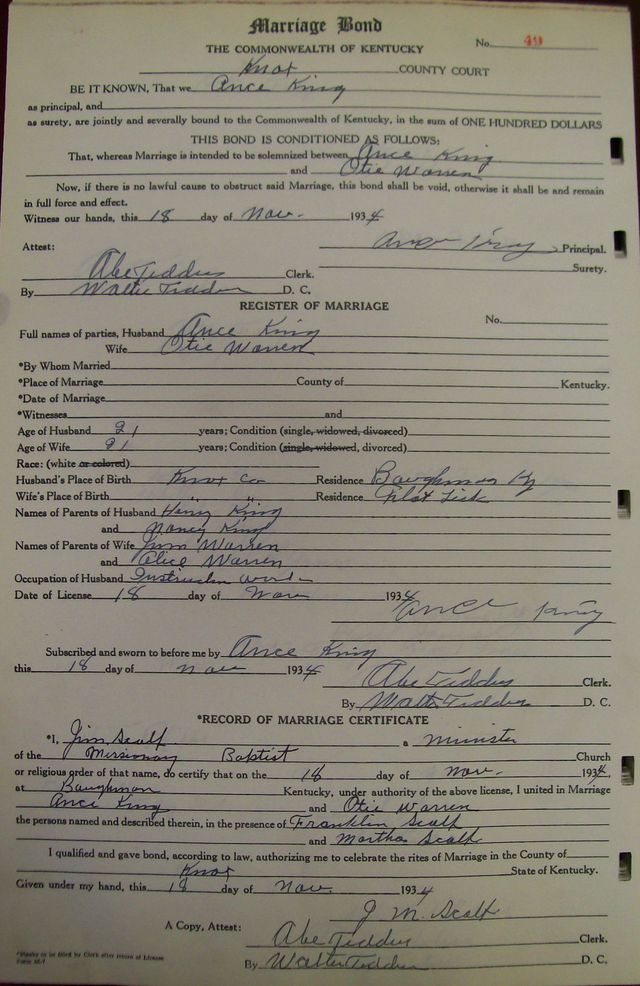 Marriage Bond
No. 49
THE COMMONWEALTH OF KENTUCKY
Knox COUNTY COURT
BE IT KNOWN, That we Ance King
as principal, and
as surety, are jointly and severally bound to the Commonwealth of Kentucky, in the sum of ONE HUNDRED DOLLARS
THIS BOND IS CONDITIONED AS FOLLOWS:
That, whereas Marriage is intended to be solemnized between Ance King
and Otie Warren
Now, if there is no lawful cause to obstruct said Marriage, this bond shall be void, otherwise it shall be and remain
in full force and effect.
Witness our hands, this 18 day of Nov. 1934
Attest: Ance King Principal.
Abe Tedders Clerk. Surety.
By Walter Tedders D. C.
REGISTER OF MARRIAGE
No.
Full names of parties, Husband Ance King
Wife Otie Warren
*By Whom Married
*Place of Marriage County of Kentucky.
*Date of Marriage
*Witnesses and
Age of Husband 21 years; Condition (single, widowed, divorced)
Age of Wife 21 years; Condition (single, widowed, divorced)
Race: (white or colored)
Husband's Place of Birth Knox Co Residence Baughman Ky
Wife's Place of Birth " " Residence Flat Lick
Names of Parents of Husband Henry King
and Nancy King
Names of Parents of Wife Jim Warren
and Alice Warren
Occupation of Husband
Date of License 18 day of Nov 1934
Ance King
Subscribed and sworn to before me by Ance King
this 18 day of Nov 1934
Abe Tedders Clerk.
By Walter Tedders D. C.
*RECORD OF MARRIAGE CERTIFICATE
*I, Jim Scalf a Minister
of the Missionary Baptist Church
or religious order of that name, do certify that on the 18 day of Nov. 1934,
at Baughman Kentucky, under authority of the above license, I united in Marriage
Ance King and Otie Warren
the persons named and described therein, in the presence of Franklin Scalf
and Martha Scalf
I qualified and gave bond, according to law, authorizing me to celebrate the rites of Marriage in the County of
Knox State of Kentucky.
Given under my hand, this 18 day of Nov. 1934
J. M. Scalf
A Copy, Attest: Abe Tedders Clerk.
By Walter Tedders D. C.
*Blanks to be filled by Clerk after return of License